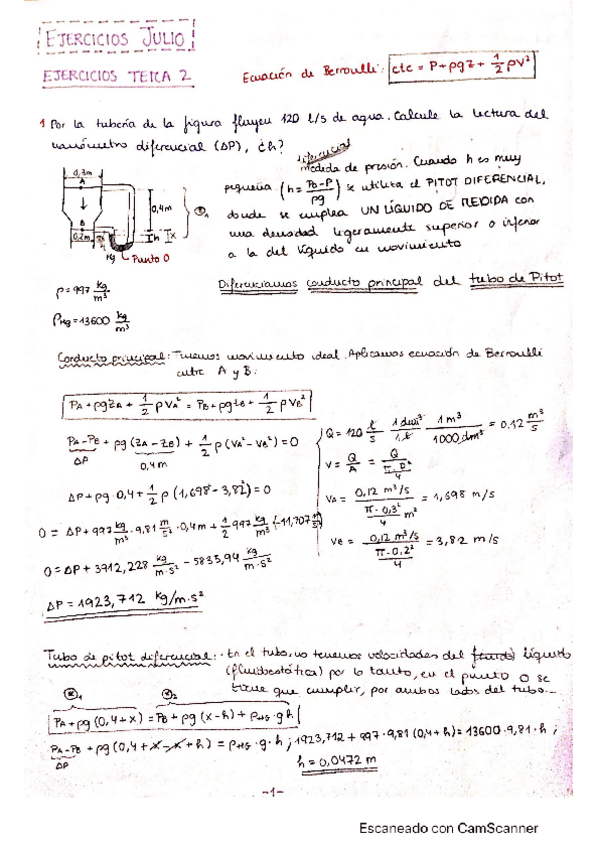 EJERCICIOS JULIO
EJERCICIOS TEMA 2
Ecuación de Bernoulli: ctc = P + ρgz + 1/2 ρv²
1 Por la tubería de la figura fluyen 120 l/s de agua. Calcule la lectura del
manómetro diferencial (ΔP), ¿h?
diferencial
medida de presión. Cuando h es muy
pequeña (h = PB-P/ρg) se utiliza el PITOT DIFERENCIAL,
donde se emplea UN LÍQUIDO DE MEDIDA con
una densidad ligeramente superior o inferior
a la del líquido en movimiento
0,3m
A
0,4m
B
0,2m
h
x
Hg
Punto O
Diferenciamos conducto principal del tubo de Pitot
ρ = 997 kg/m³
ρHg = 13600 kg/m³
Conducto principal: Tenemos movimiento ideal. Aplicamos ecuación de Bernoulli
entre A y B:
PA + ρgzA + 1/2 ρVA² = PB + ρgzB + 1/2 ρVB²
PA - PB + ρg (zA - zB) + 1/2 ρ (VA² - VB²) = 0
ΔP
0,4m
ΔP + ρg · 0,4 + 1/2 ρ (1,698² - 3,82²) = 0
0 = ΔP + 997 kg/m³ · 9,81 m/s² · 0,4m + 1/2 997 kg/m³ (-11,707
0 = ΔP + 3912,228 kg/m·s² - 5835,94 kg/m·s²
ΔP = 1923,712 kg/m·s²
Q = 120 l/s 1 dm³/1 l 1 m³/1000 dm³ = 0.12 m³/s
V = Q/A = Q/(π·D²/4)
VA = 0,12 m³/s / (π·0,3²/4 m²) = 1,698 m/s
VB = 0,12 m³/s / (π·0.2²/4) = 3,82 m/s
Tubo de pitot diferencial: · En el tubo, no tenemos velocidades del líquido
(fluidoestática) por lo tanto, en el punto O se
tiene que cumplir, por ambos lados del tubo...
PA + ρg (0,4 + x) = PB + ρg (x - h) + ρHg · g h
PA - PB + ρg (0,4 + x - x + h) = ρHg · g · h ; 1923,712 + 997 · 9,81 (0,4 + h) = 13600 · 9,81 · h ;
ΔP
h = 0,0472 m
-1-
Escaneado con CamScanner